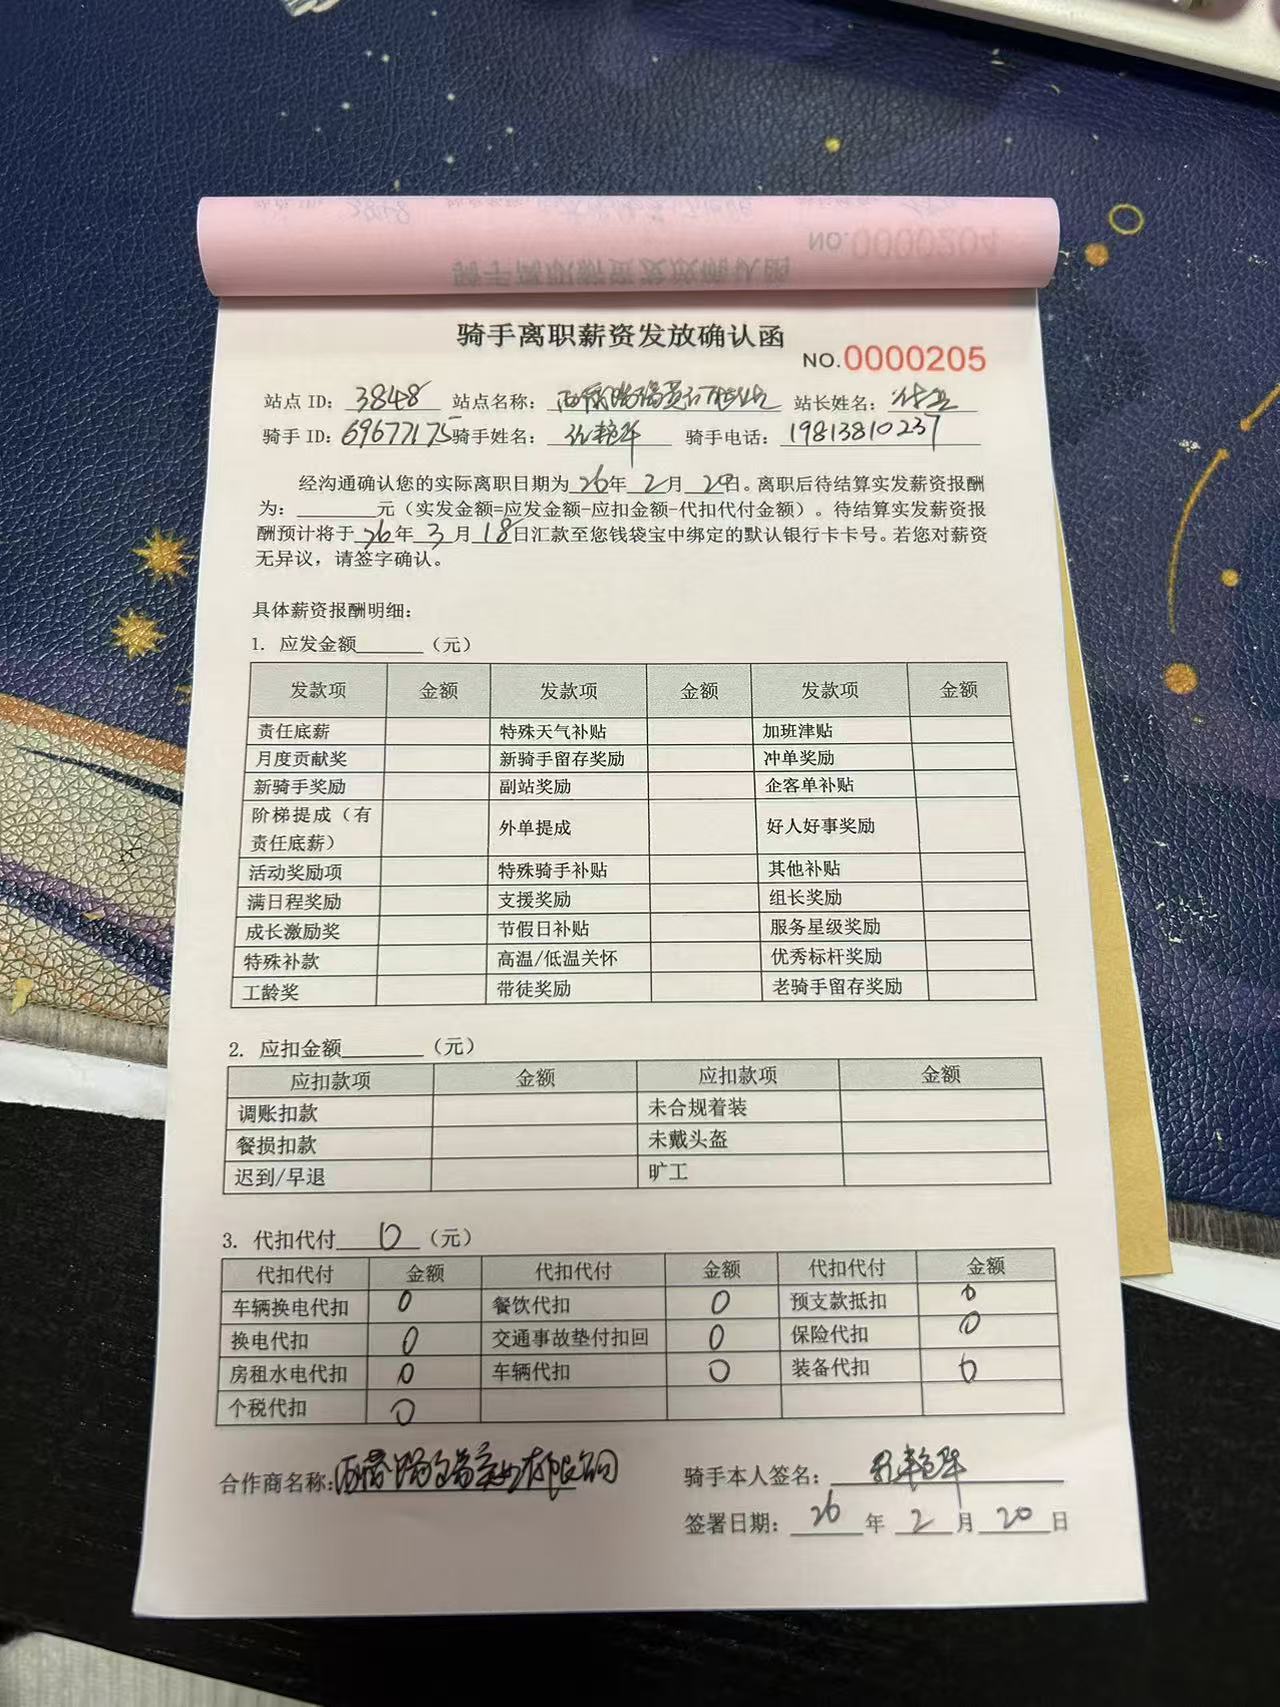 NO.0000204
骑手离职薪资发放确认函
骑手离职薪资发放确认函
NO.0000205
站点 ID: 3848 站点名称: 站长姓名:
骑手 ID: 69677175 骑手姓名: 骑手电话: 19813810237
经沟通确认您的实际离职日期为26年2月20日。离职后待结算实发薪资报酬
为: 元（实发金额=应发金额-应扣金额-代扣代付金额）。待结算实发薪资报
酬预计将于26年3月18日汇款至您钱袋宝中绑定的默认银行卡卡号。若您对薪资
无异议，请签字确认。
具体薪资报酬明细:
1. 应发金额______（元）
发款项 金额 发款项 金额 发款项 金额
责任底薪 特殊天气补贴 加班津贴
月度贡献奖 新骑手留存奖励 冲单奖励
新骑手奖励 副站奖励 企客单补贴
阶梯提成（有
责任底薪） 外单提成 好人好事奖励
活动奖励项 特殊骑手补贴 其他补贴
满日程奖励 支援奖励 组长奖励
成长激励奖 节假日补贴 服务星级奖励
特殊补款 高温/低温关怀 优秀标杆奖励
工龄奖 带徒奖励 老骑手留存奖励
2. 应扣金额_______（元）
应扣款项 金额 应扣款项 金额
调账扣款 未合规着装
餐损扣款 未戴头盔
迟到/早退 旷工
3. 代扣代付 0 （元）
代扣代付 金额 代扣代付 金额 代扣代付 金额
车辆换电代扣 0 餐饮代扣 0 预支款抵扣 0
换电代扣 0 交通事故垫付扣回 0 保险代扣 0
房租水电代扣 0 车辆代扣 0 装备代扣 0
个税代扣 0
合作商名称: 骑手本人签名:
签署日期: 26 年 2 月 20 日